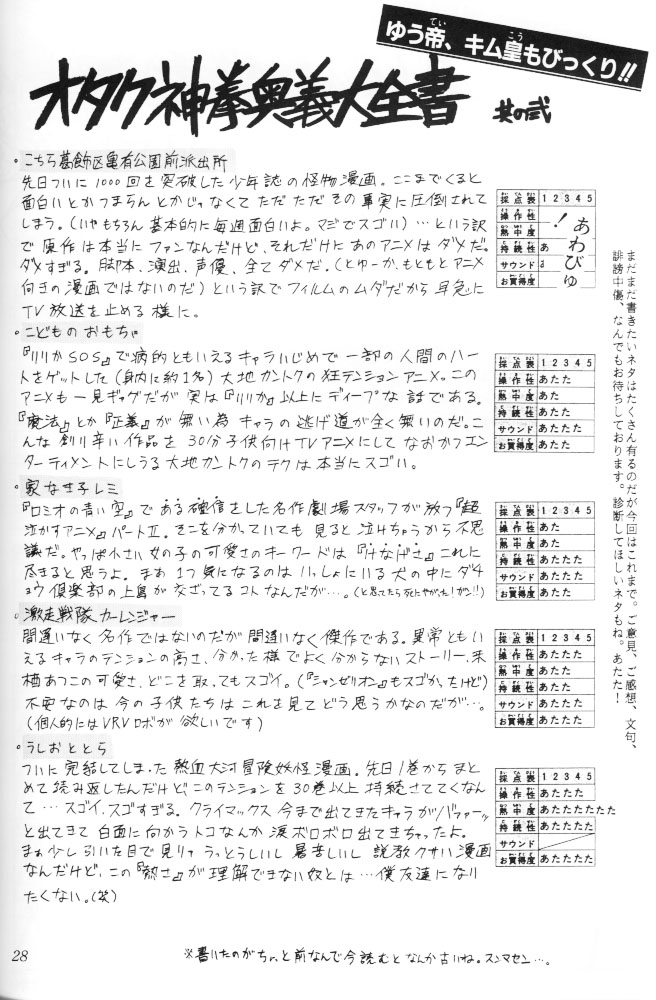 ゆう帝、キム皇もびっくり!!
オタク神拳奥義大全書 其の弐
・こちら葛飾区亀有公園前派出所
先日ついに1000回を突破した少年誌の怪物漫画。ここまでくると
面白いとかつまらんとかじゃなくてただただその事実に圧倒されて
しまう。(いやもちろん基本的に毎週面白いよ。マジでスゴイ)…という訳
で原作は本当にファンなんだけど、それだけにあのアニメはダメだ。
ダメすぎる。脚本、演出、声優、全てダメだ。(とゆーか、もともとアニメ
向きの漫画ではないのだ)という訳でフィルムのムダだから早急に
TV放送を止める様に。
採点表 1 2 3 4 5
操作性
熱中度
持続性 あ
サウンド
お買得度
!あわびゅ
・こどものおもちゃ
『りりかSOS』で病的ともいえるキャラいじめで一部の人間のハー
トをゲットした(身内に約1名)大地カントクの狂テンションアニメ。この
アニメも一見ギャグだが実は『りりか』以上にディープな話である。
『魔法』とか『正義』が無い為キャラの逃げ道が全く無いのだ。こ
んな創り辛い作品を30分子供向けTVアニメにしてなおかつエン
ターティメントにしうる大地カントクのテクは本当にスゴい。
採点表 1 2 3 4 5
操作性 あたた
熱中度 あた
持続性 あたた
サウンド あたたた
お買得度 あたたた
・家なき子レミ
『ロミオの青い空』である確信をした名作劇場スタッフが放つ『超
泣かすアニメ』パートⅡ。そこを分かっていても見ると泣けちゃうから不思
議だ。やっぱ小さい女の子の可愛さのキーワードは『けなげさ』これに
尽きると思うよ。まあ1つ気になるのはいっしょにいる犬の中にダチ
ョウ倶楽部の上島がまざってるコトなんだが…。(と思てたら死にやがった!ガン!!)
採点表 1 2 3 4 5
操作性 あた
熱中度 あた
持続性 あたたたた
サウンド あたたたた
お買得度 あたた
・激走戦隊カーレンジャー
間違いなく名作ではないのだが間違いなく傑作である。異常ともい
えるキャラのテンションの高さ、分かった様でよく分からないストーリー、来
栖あつこの可愛さ、どこを取ってもスゴイ。(『シャンゼリオン』もスゴかったけど)
不安なのは今の子供たちはこれを見てどう思うかなのだが…。
(個人的にはVRVロボが欲しいです)
採点表 1 2 3 4 5
操作性 あたたたた
熱中度 あたたた
持続性 あたたた
サウンド あたたた
お買得度 あたたた
・うしおととら
ついに完結してしまった熱血大河冒険妖怪漫画。先日1巻からまと
めて読み返したんだけどこのテンションを30巻以上持続させてくなん
て…スゴイ、スゴすぎる。クライマックス今まで出てきたキャラがバファーッ
と出てきて白面に向かうトコなんか涙ボロボロ出てきちゃったよ。
まぁ少し引いた目で見りゃうっとうしいし暑苦しいし説教クサい漫画
なんだけど、この『熱さ』が理解できない奴とは…僕友達になり
たくない。(笑)
採点表 1 2 3 4 5
操作性 あたたた
熱中度 あたたたたたた
持続性 あたたたたた
サウンド
お買得度 あたたたた
まだまだ書きたいネタはたくさん有るのだが今回はこれまで。ご意見、ご感想、文句、
誹謗中傷、なんでもお待ちしております。診断してほしいネタもね。あたた!
28
※書いたのがちょっと前なんで今読むとなんか古いね。スンマセン…。